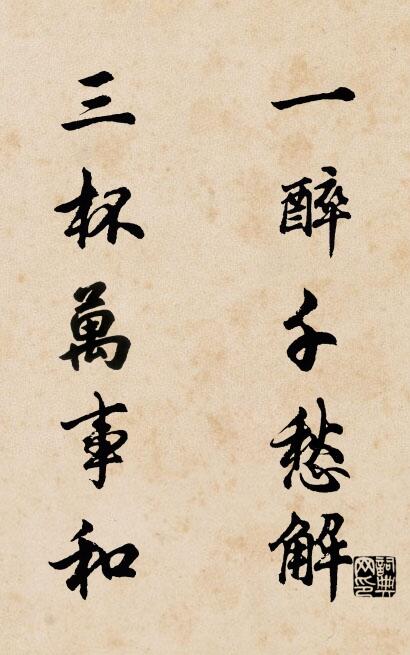 一醉千愁解
三杯萬事和
詞典
网印